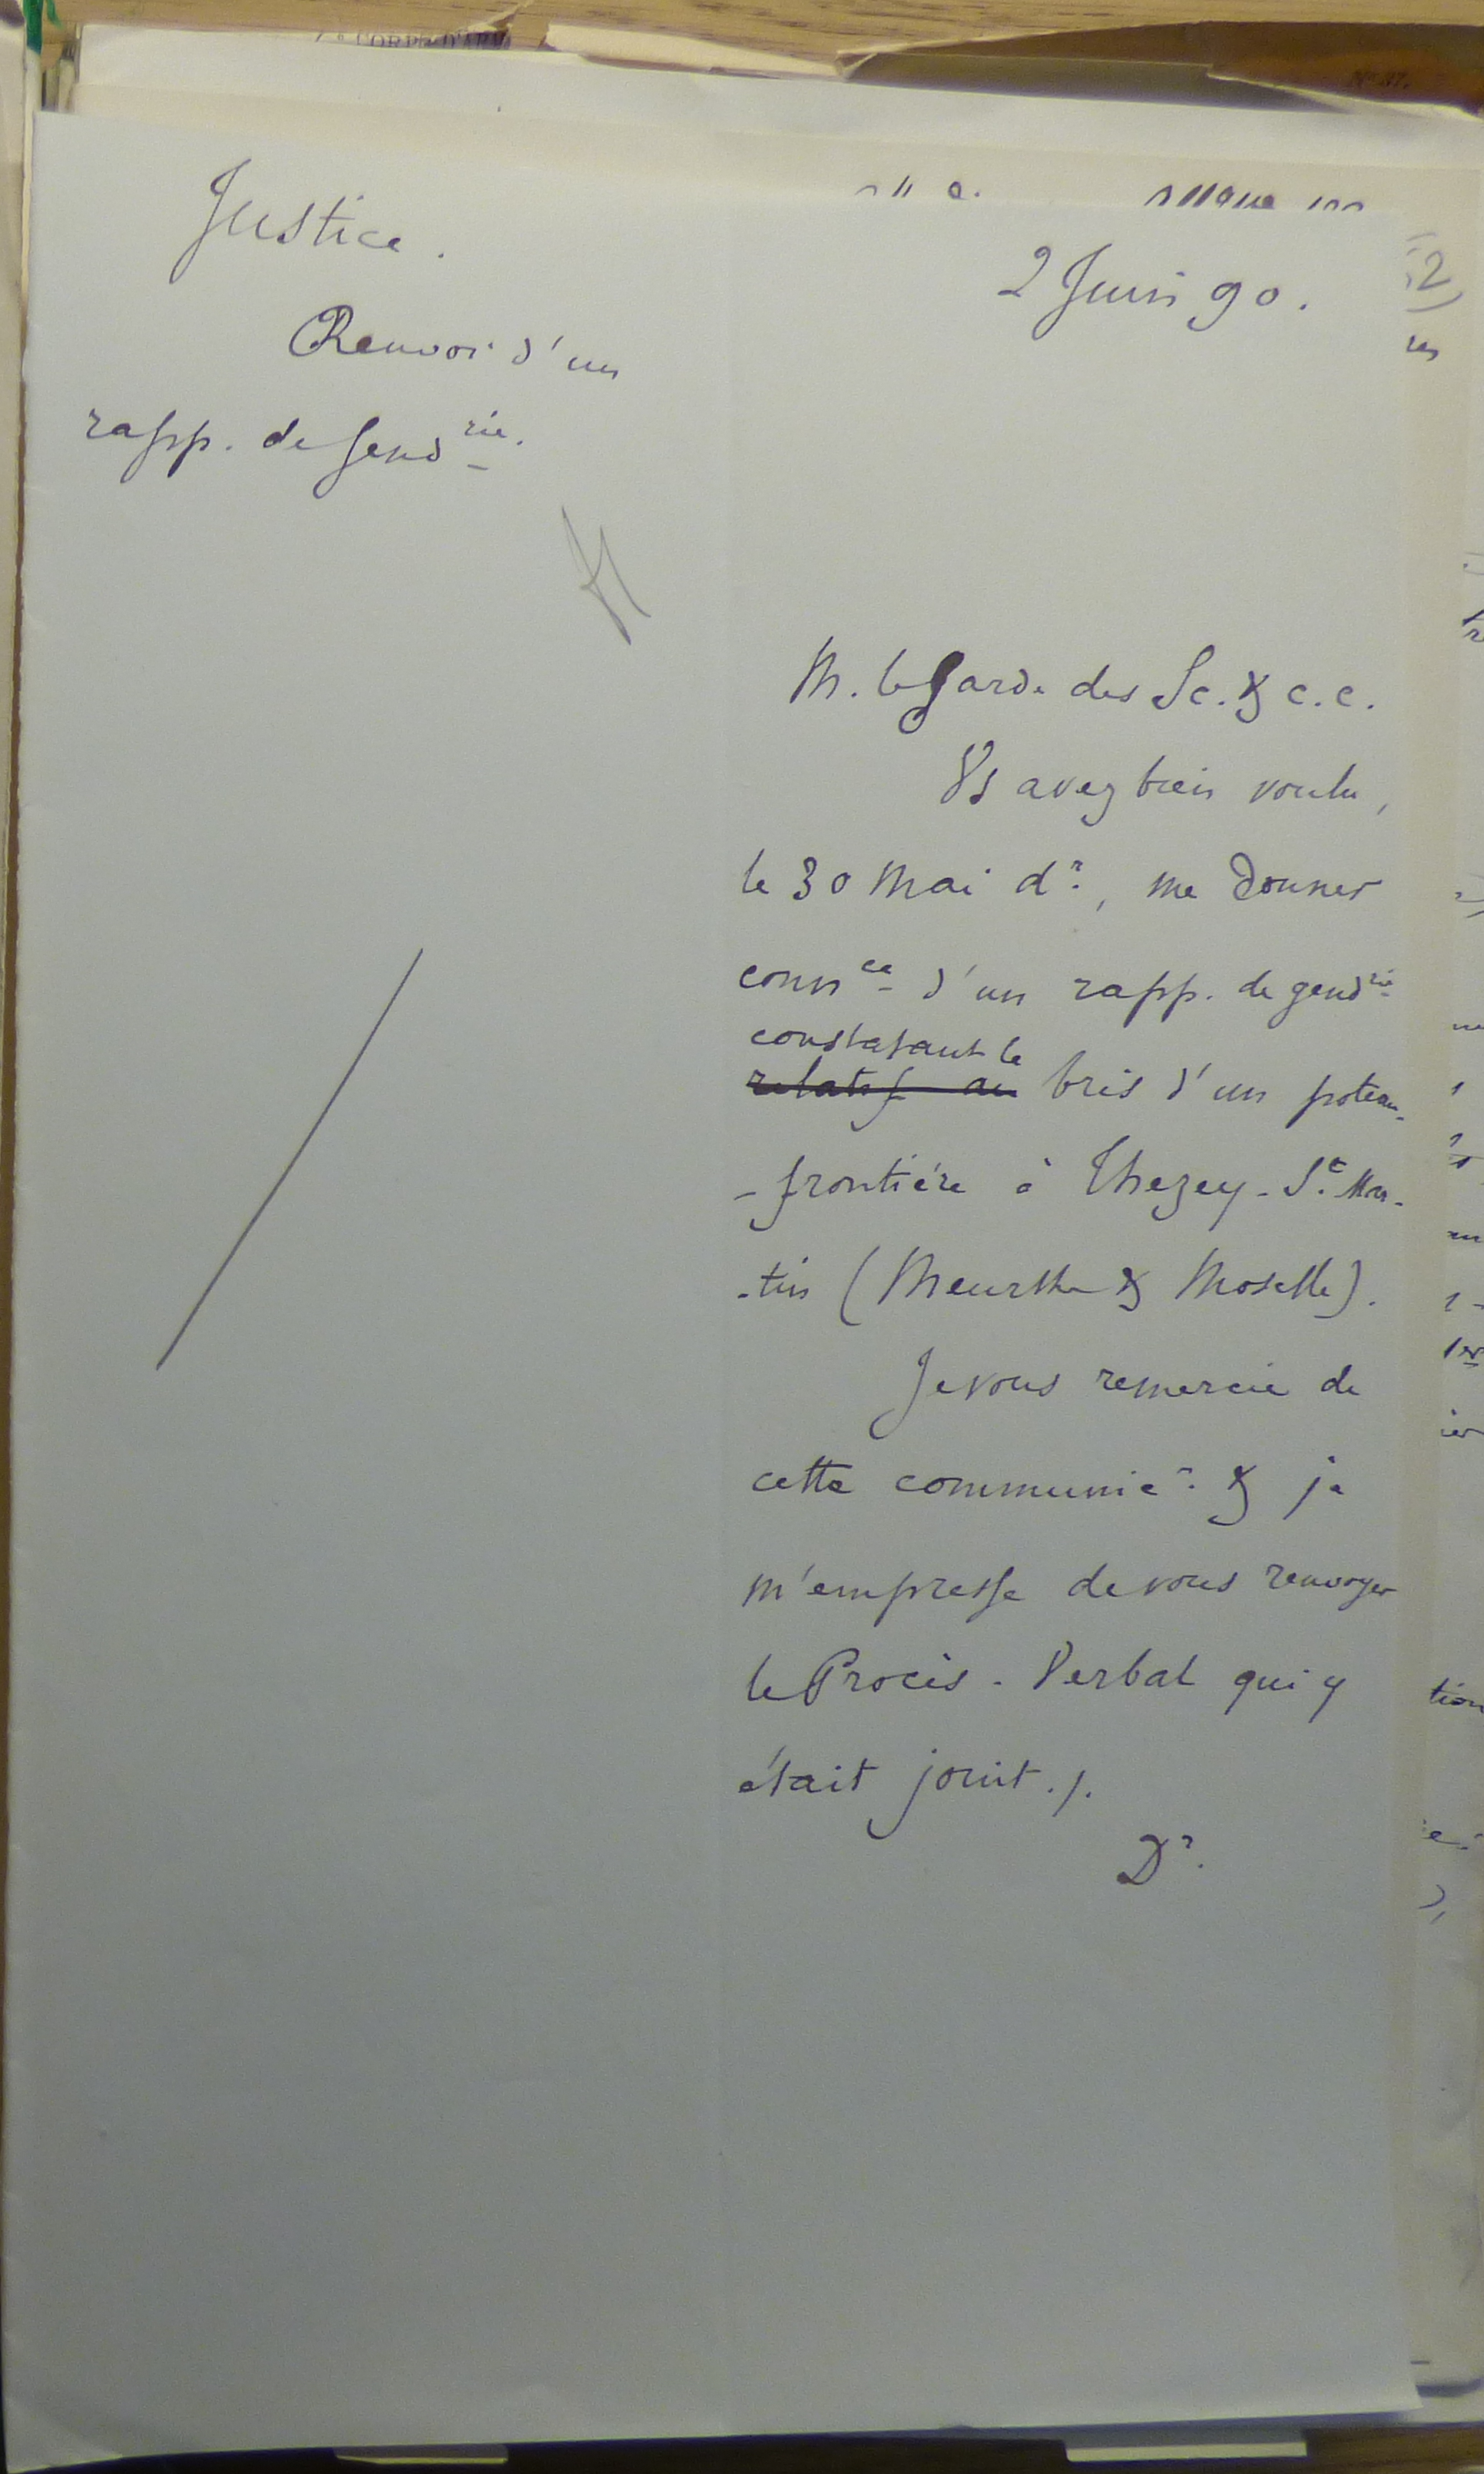 Justice.
Renvoi d'un
rapp. de gend rie.
2 Juin 90.
M. le Garde des Sc. & c. c.
Vs avez bien voulu,
le 30 Mai dr., me donner
connce d'un rapp. de gendrie
constatant le
relatif au bris d'un poteau-
-frontière à Thezey-St. Mar-
-tin (Meurthe & Moselle).
Je vous remercie de
cette communicn. & je
m'empresse de vous renvoyer
le Procès-Verbal qui y
était joint ./.
Dr.